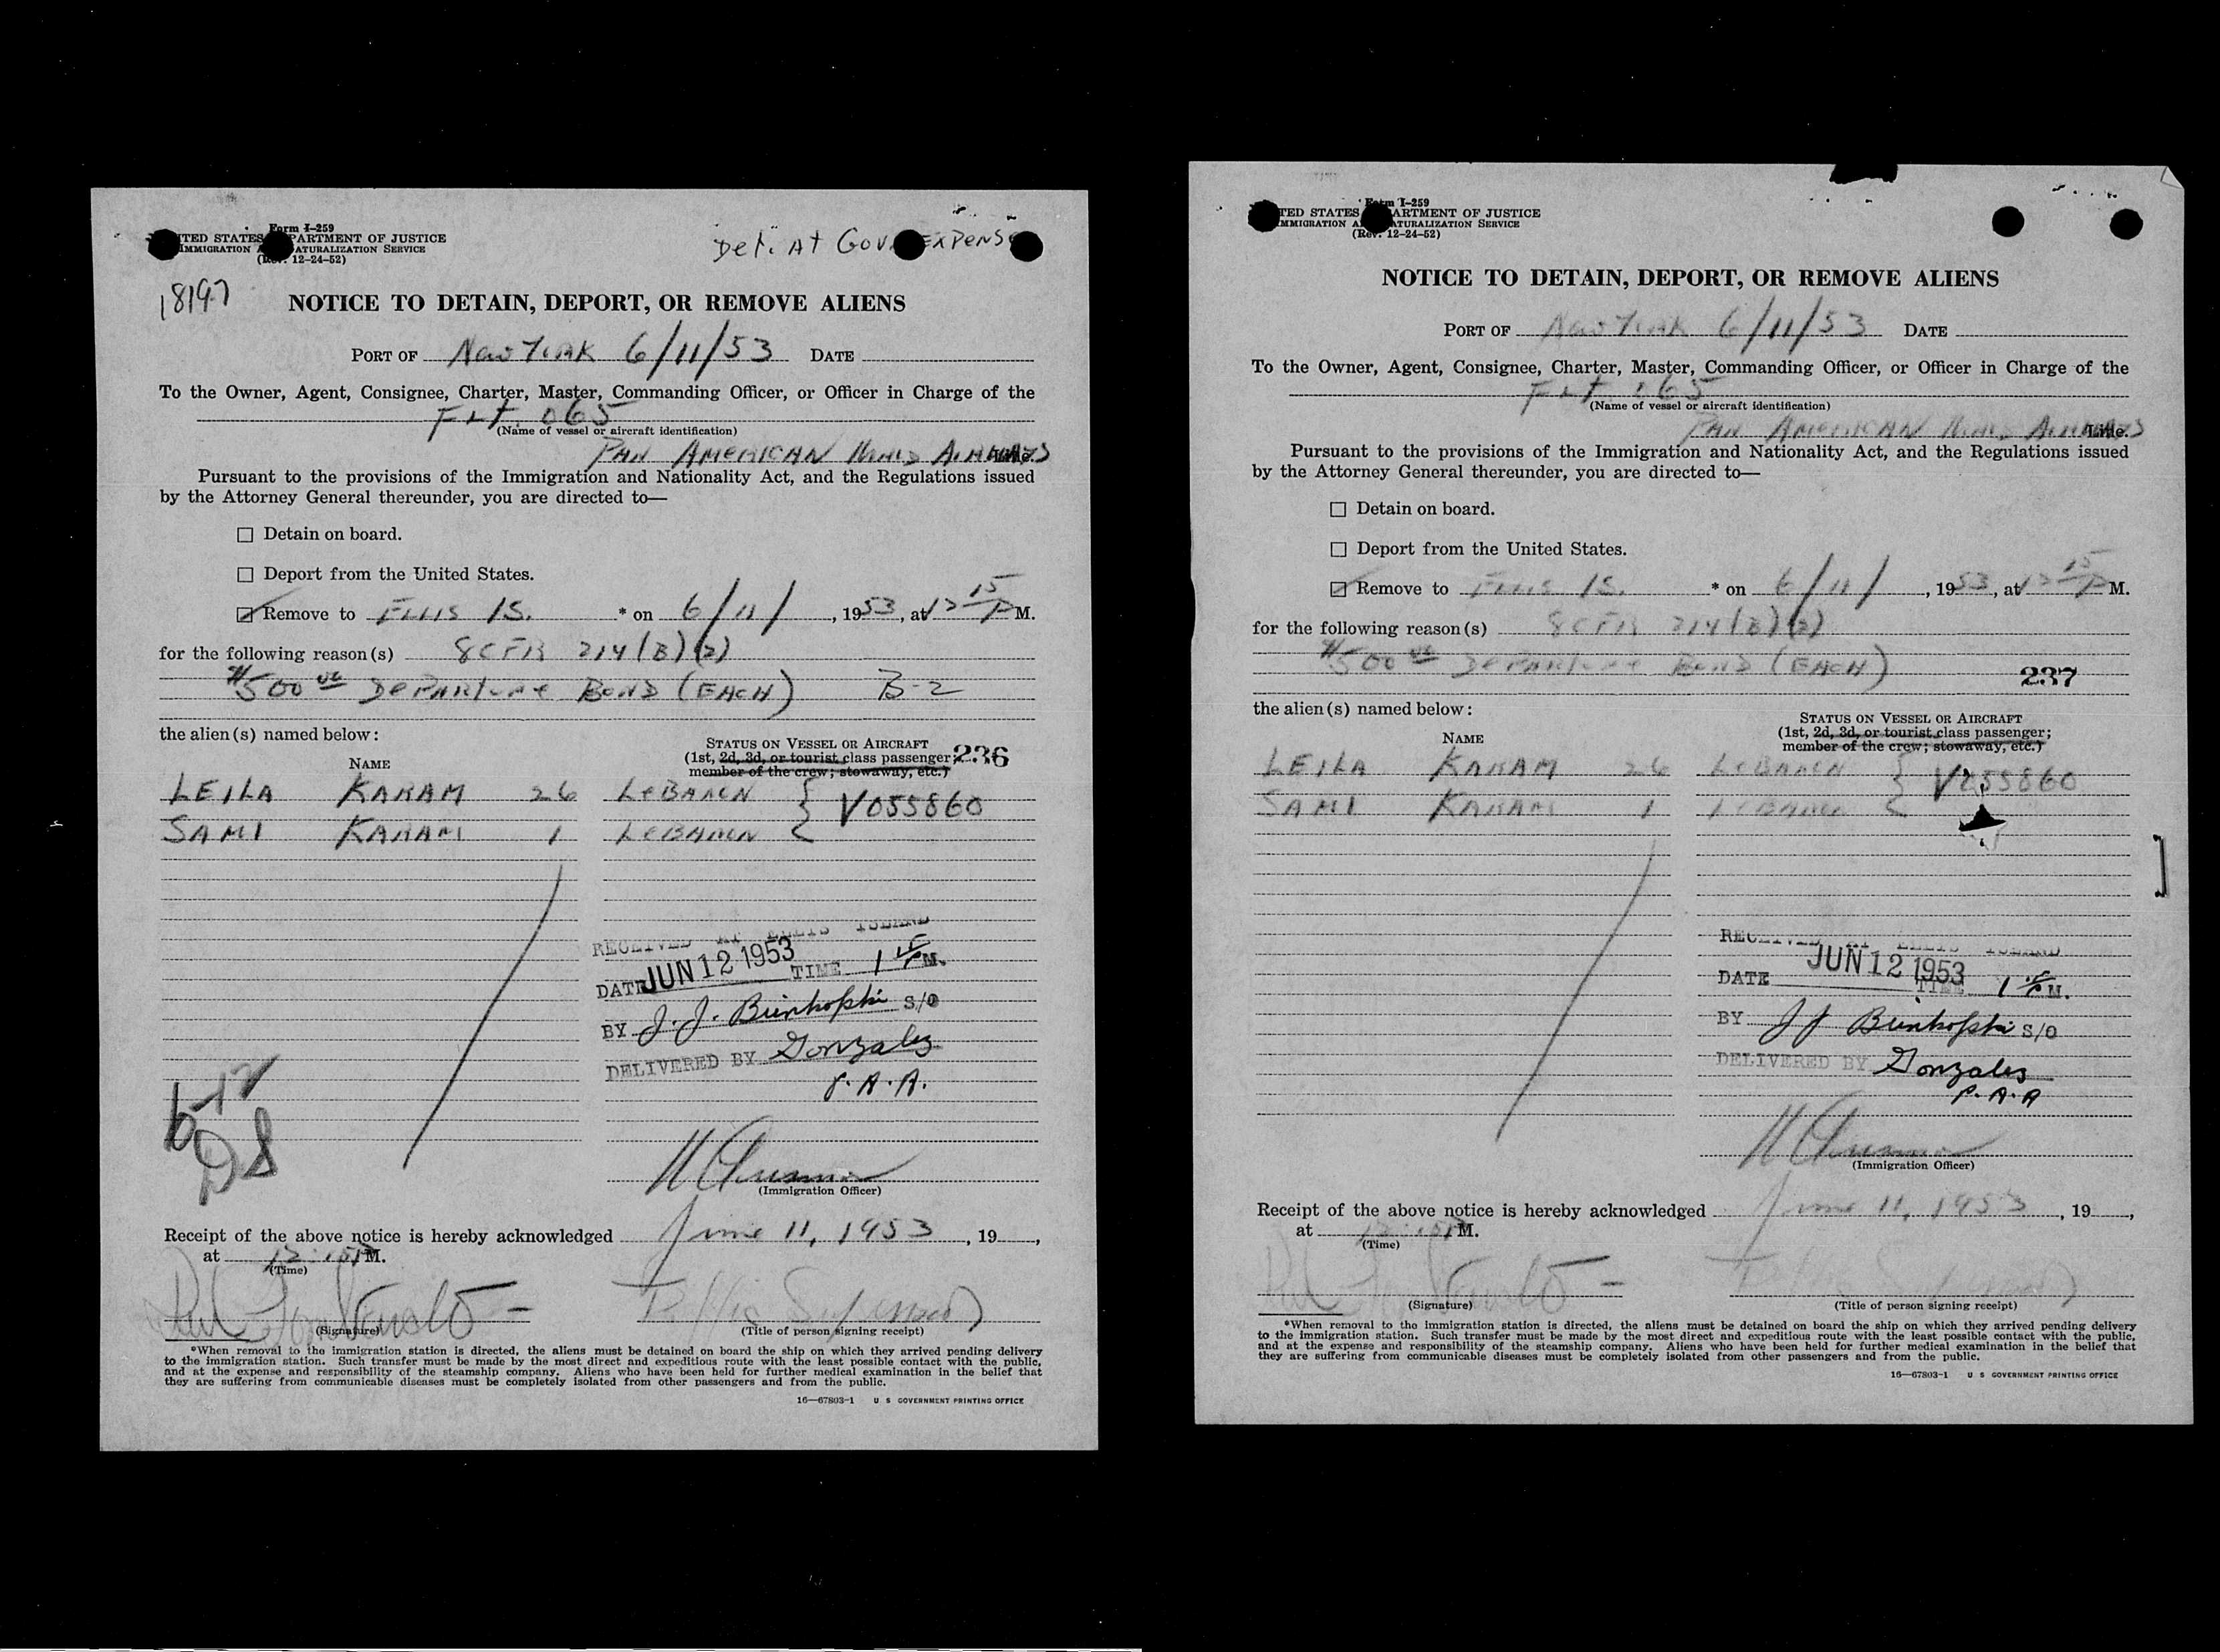 Form I-259
UNITED STATES DEPARTMENT OF JUSTICE
IMMIGRATION AND NATURALIZATION SERVICE
(Rev. 12-24-52)
Det. At Gov. Expense
18197
NOTICE TO DETAIN, DEPORT, OR REMOVE ALIENS
PORT OF New York 6/11/53 DATE
To the Owner, Agent, Consignee, Charter, Master, Commanding Officer, or Officer in Charge of the
FLT 065
(Name of vessel or aircraft identification)
PAN AMERICAN World AIRWAYS Line.
Pursuant to the provisions of the Immigration and Nationality Act, and the Regulations issued
by the Attorney General thereunder, you are directed to—
☐ Detain on board.
☐ Deport from the United States.
☑ Remove to ELLIS IS. * on 6/11/, 1953, at 12 15 P M.
for the following reason(s) 8 CFR 214(B)(2)
$500 00 DEPARTURE BOND (EACH) B-2
the alien(s) named below:
NAME
STATUS ON VESSEL OR AIRCRAFT
(1st, 2d, 3d, or tourist class passenger; 236
member of the crew; stowaway, etc.)
LEILA KARAM 26 LEBANON } V055860
SAMI KARAM 1 LEBANON
RECEIVED AT ELLIS ISLAND
DATE JUN 12 1953 TIME 1 15 P M.
BY J. J. S/O
DELIVERED BY Gonzales
P.A.A.
6-12
DS
(Immigration Officer)
Receipt of the above notice is hereby acknowledged June 11, 1953, 19,
at 12:15P M.
(Time)
(Signature) (Title of person signing receipt)
*When removal to the immigration station is directed, the aliens must be detained on board the ship on which they arrived pending delivery
to the immigration station. Such transfer must be made by the most direct and expeditious route with the least possible contact with the public,
and at the expense and responsibility of the steamship company. Aliens who have been held for further medical examination in the belief that
they are suffering from communicable diseases must be completely isolated from other passengers and from the public.
16—67803-1 U S GOVERNMENT PRINTING OFFICE
Form I-259
UNITED STATES DEPARTMENT OF JUSTICE
IMMIGRATION AND NATURALIZATION SERVICE
(Rev. 12-24-52)
NOTICE TO DETAIN, DEPORT, OR REMOVE ALIENS
PORT OF New York 6/11/53 DATE
To the Owner, Agent, Consignee, Charter, Master, Commanding Officer, or Officer in Charge of the
FLT 065
(Name of vessel or aircraft identification)
PAN AMERICAN World AIRWAYS Line.
Pursuant to the provisions of the Immigration and Nationality Act, and the Regulations issued
by the Attorney General thereunder, you are directed to—
☐ Detain on board.
☐ Deport from the United States.
☑ Remove to ELLIS IS. * on 6/11/, 1953, at 12 15 P M.
for the following reason(s) 8 CFR 214(B)(2)
$500 00 DEPARTURE BOND (EACH) 237
the alien(s) named below:
NAME
STATUS ON VESSEL OR AIRCRAFT
(1st, 2d, 3d, or tourist class passenger;
member of the crew; stowaway, etc.)
LEILA KARAM 26 LEBANON } V055860
SAMI KARAM 1 LEBANON
RECEIVED AT ELLIS ISLAND
DATE JUN 12 1953 TIME 1 15 P M.
BY J J S/O
DELIVERED BY Gonzales
P.A.A
(Immigration Officer)
Receipt of the above notice is hereby acknowledged June 11, 1953, 19,
at 12:15P M.
(Time)
(Signature) (Title of person signing receipt)
*When removal to the immigration station is directed, the aliens must be detained on board the ship on which they arrived pending delivery
to the immigration station. Such transfer must be made by the most direct and expeditious route with the least possible contact with the public,
and at the expense and responsibility of the steamship company. Aliens who have been held for further medical examination in the belief that
they are suffering from communicable diseases must be completely isolated from other passengers and from the public.
16—67803-1 U S GOVERNMENT PRINTING OFFICE